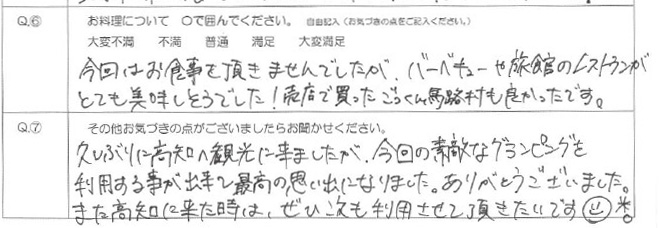 Q.⑥ お料理について 〇で囲んでください。 自由記入（お気づきの点をご記入ください。）
大変不満 不満 普通 満足 大変満足
今回はお食事を頂きませんでしたが、バーベキューや旅館のレストランが
とても美味しそうでした！売店で買ったごっくん馬路村も良かったです。
Q.⑦ その他お気づきの点がございましたらお聞かせください。
久しぶりに高知へ観光に来ましたが、今回の素敵なグランピングを
利用する事が出来て最高の思い出になりました。ありがとうございました。
また高知に来た時は、ぜひ次も利用させて頂きたいです